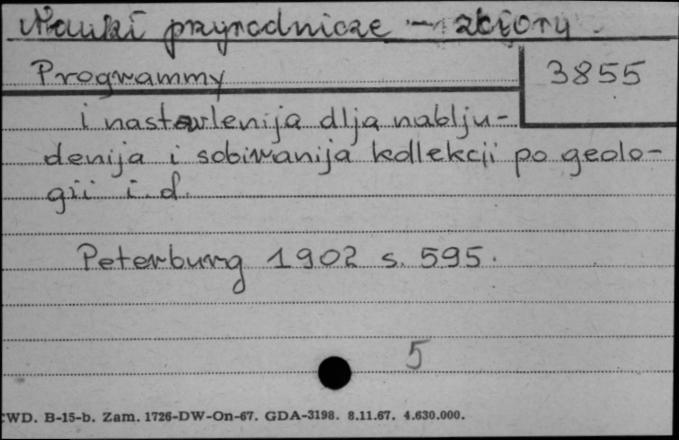 Nauki przyrodnicze - zbiory.
Programmy 3855
i nastavlenija dlja nablju-
denija i sobiranija kollekcji po geolo-
gii i. d.
Peterburg 1902 s. 595.
5
WD. B-15-b. Zam. 1726-DW-On-67. GDA-3198. 8.11.67. 4.630.000.